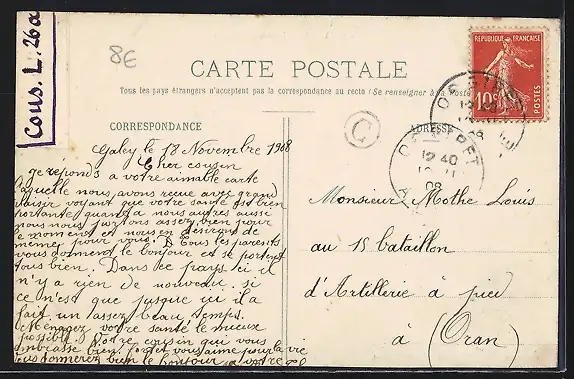 Cons. L. 26a
8E
CARTE POSTALE
Tous les pays étrangers n'acceptent pas la correspondance au recto (Se renseigner à la Poste
RÉPUBLIQUE FRANÇAISE
10
POSTES
CORRESPONDANCE
ADRESSE
C
12 40
08
Galey le 18 Novembre 1908
Cher cousin
je reponds a votre aimable carte
laquelle nous avons recue avec grand
plaisir voyant que votre santé est bien
portante quand a nous autres aussi
nous nous portons assez bien pour
le moment et nous en desirons de
même pour vous. Tous les parents
vous donnent le bonjour et se portent
tous bien. Dans ce pays ci il
n'y a rien de nouveau si
ce n'est que jusque ici il a
fait un assez beau temps.
Menagez votre santé le mieux
possible. Votre cousin qui vous
embrasse bien vous aime pour la vie
vous donnerez bien le bonjour a votre
Monsieur Mothe Louis
au 15 bataillon
d'Artillerie à pied
à (Oran)